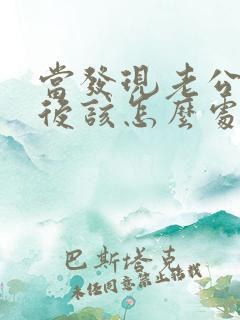 當發現老公
後該怎麼處
巴斯塔克
未經同意禁止轉載